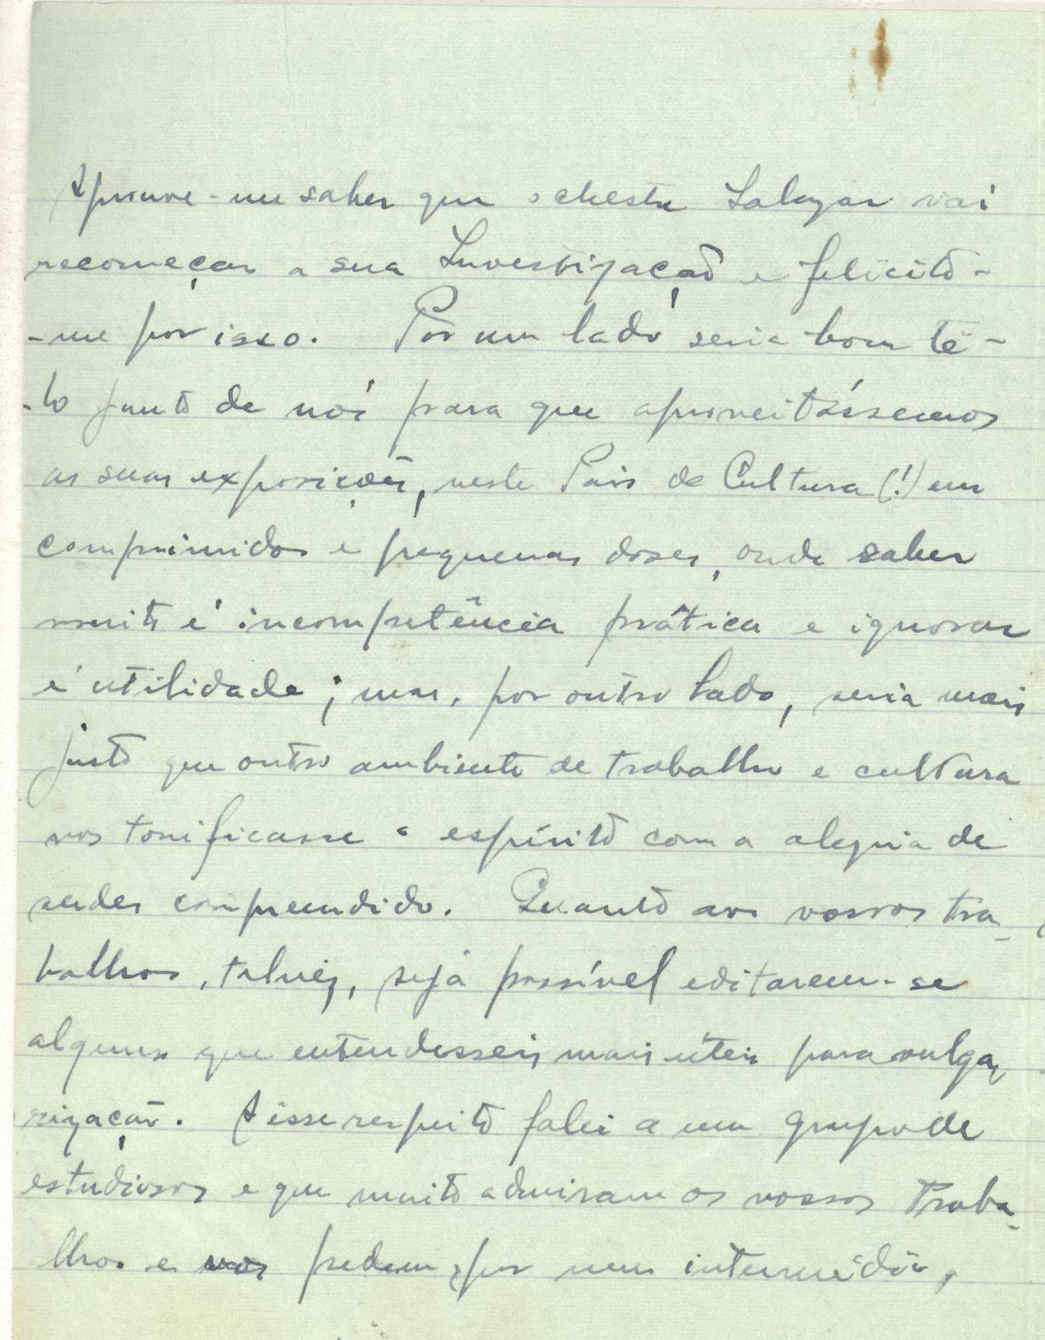 Aprouve-me saber que o Mestre Salazar vai
recomeçar a sua Investigação e felicito-
-me por isso. Por um lado seria bom tê-
-lo junto de nós para que aproveitássemos
as suas exposições, neste País de Cultura (!) em
comprimidos e pequenas doses, onde saber
muito é incompetência prática e ignorar
é utilidade; mas, por outro lado, seria mais
justo que outro ambiente de trabalho e cultura
vos tonificasse o espírito com a alegria de
serdes compreendido. Quanto aos vossos tra-
balhos, talvez, seja possível editarem-se
alguns que entendesseis mais úteis para vulga-
rização. A êsse respeito falei a um grupo de
estudiosos e que muito admiram os vossos Traba-
lhos e vos pedem, por meu intermédio,